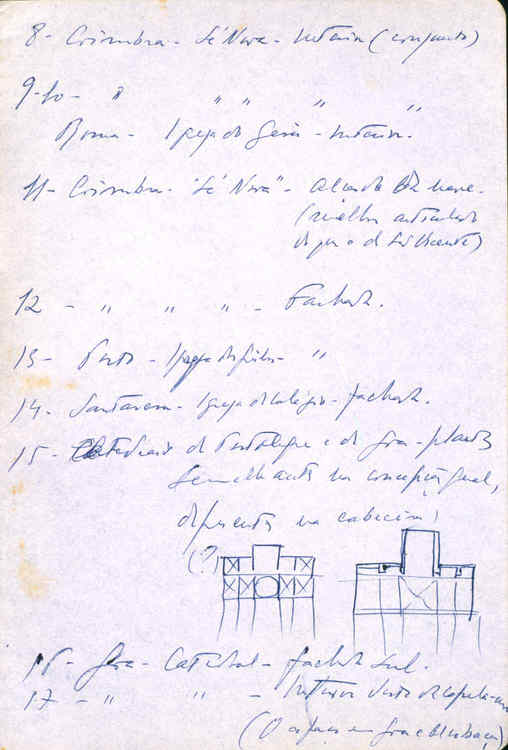 8 - Coimbra - Sé Nova - Interior (conjunto)
9-10 - " " " " "
Roma - Igreja do Gesù - Interior.
11 - Coimbra - "Sé Nova" - Alçado da nave.
(melhor articulado
do que o de S. Vicente)
12 - " " " - Fachada.
13 - Porto - Igreja dos Grilos - "
14 - Santarem - Igreja do Colégio - fachada.
15 - Catedrais de Portalegre e de Goa - planta
Semelhante na concepção geral,
diferente na cabeceira
(?)
16 - Goa - Catedral - fachada sul.
17 - " " - Interior visto da capela-mor
(O espaço em Goa e